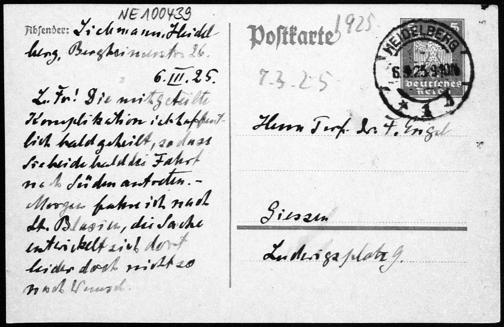 NE100439
Absender: Zichmann, Heidel
berg, Bergheimerstr. 26.
6. III. 25.
L. Fr! Die mitgeteilte
Komplikation ist hoffent-
lich bald geheilt, so dass
Sie beide bald die Fahrt
nach Süden antreten. -
Morgen fahre ich nach
St. Blasien, die Sache
entwickelt sich dort
leider doch nicht so
nach Wunsch.
Postkarte
1925
7.3.25
HEIDELBERG
6.3.25.9-10N
1
5
Deutsches
Reich
Herrn Prof. Dr. F. Engel
Giessen
Ludwigsplatz 9.